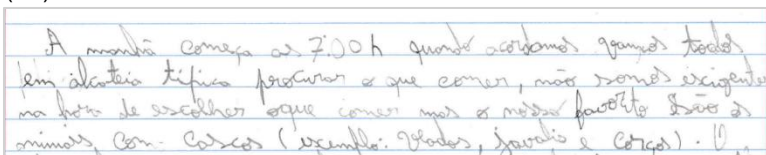 A manhã começa as 7:00 h quando acordamos vamos todos
em alcateia tipica procurar o que comer, não somos exigentes
na hora de escolher oque comer mas o nosso favorito são os
nimais com cascos (exemplo: Veados, javalis e corços).